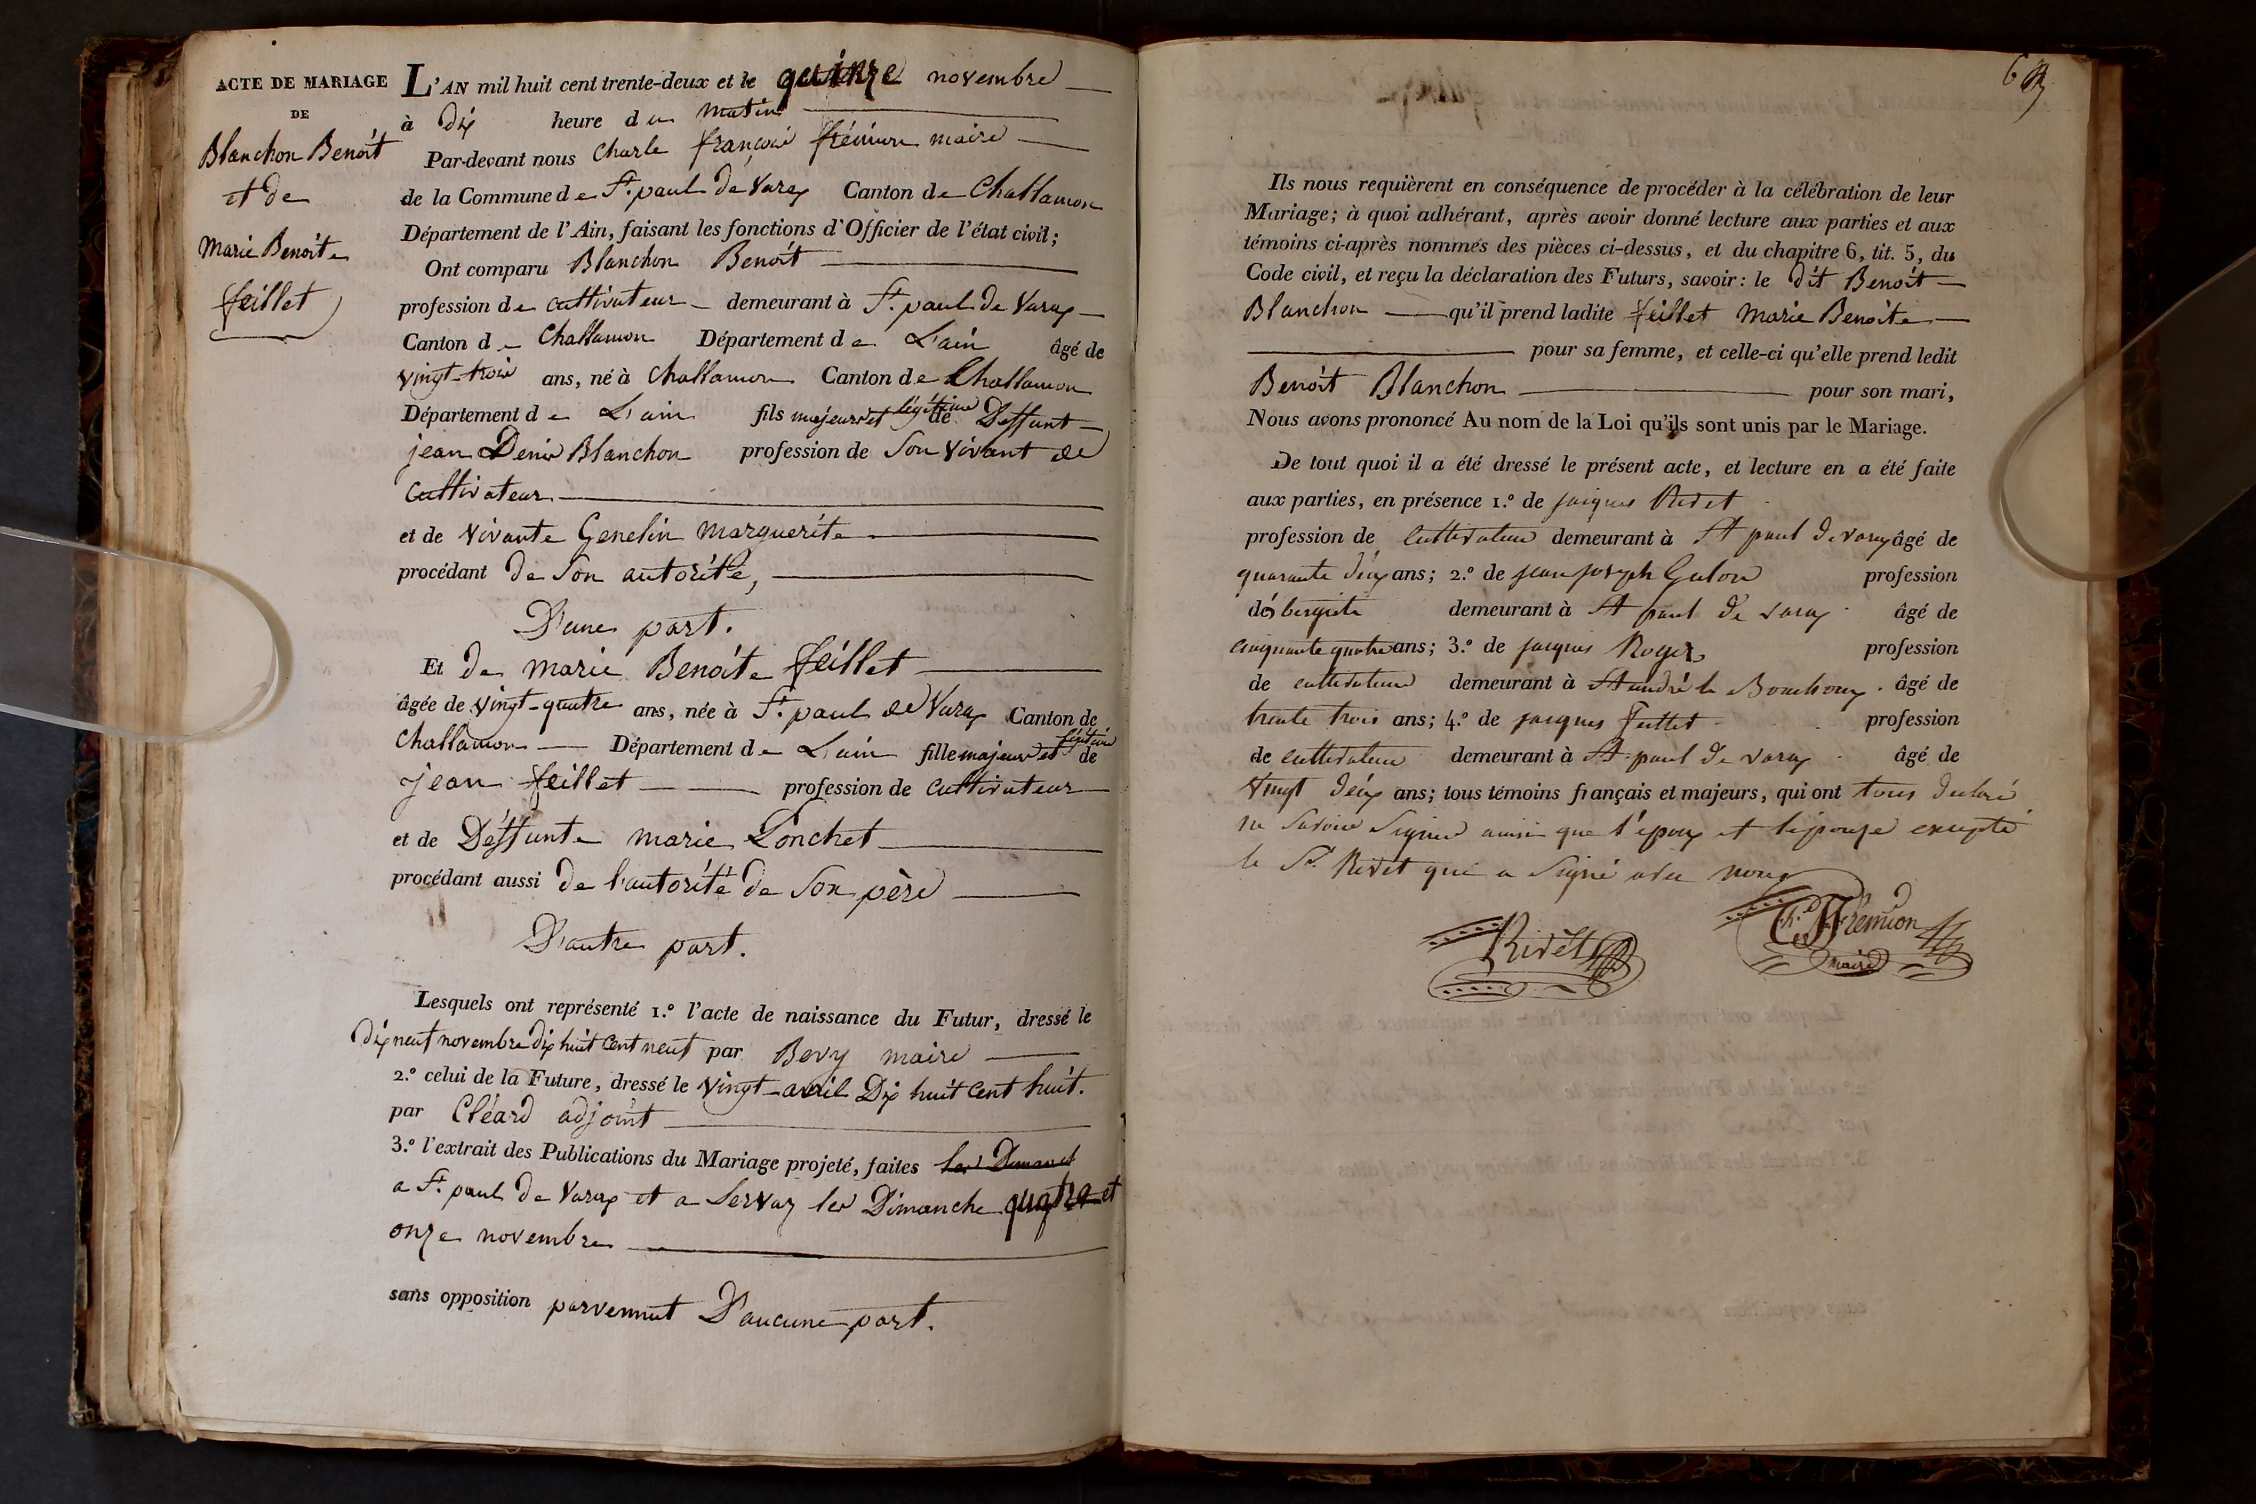 ACTE DE MARIAGE
DE
Blanchon Benoît
et de
Marie Benoite
feillet
L'AN mil huit cent trente-deux et le quinze novembre
à dix heure du matin
Par-devant nous Charle françois frémion maire
de la Commune de St. paul de Varax Canton de Chalamon
Département de l'Ain, faisant les fonctions d'Officier de l'état civil;
Ont comparu Blanchon Benoît
profession de cultivateur demeurant à St. paul de Varax
Canton de Challamon Département de L'ain âgé de
vingt-trois ans, né à Challamon Canton de Challamon
Département de L'ain fils majeur et légitime de Deffunt
jean Denis Blanchon profession de Son vivant de
Cultivateur
et de vivante Genelin marguerite
procédant de Son autorité,
D'une part.
Et de marie Benoite feillet
âgée de vingt-quatre ans, née à St. paul de Varax Canton de
Challamon Département de L'ain fille majeur et légitime de
jean feillet profession de cultivateur
et de Deffunte marie Ponchet
procédant aussi de l'autorité de Son père
D'autre part.
Lesquels ont représenté 1.º l'acte de naissance du Futur, dressé le
Dix neuf novembre dix huit cent neuf par Bevy maire
2.º celui de la Future, dressé le vingt avril Dix huit cent huit.
par Cléard adjoint
3.º l'extrait des Publications du Mariage projeté, faites les Dimanch
a St. paul de Varax et a Servaz les Dimanche quatre et
onze novembre
sans opposition parvennut D'aucune part.
6
Ils nous requièrent en conséquence de procéder à la célébration de leur
Mariage; à quoi adhérant, après avoir donné lecture aux parties et aux
témoins ci-après nommés des pièces ci-dessus, et du chapitre 6, tit. 5, du
Code civil, et reçu la déclaration des Futurs, savoir: le dit Benoît
Blanchon qu'il prend ladite feillet Marie Benoite
pour sa femme, et celle-ci qu'elle prend ledit
Benoît Blanchon pour son mari,
Nous avons prononcé Au nom de la Loi qu'ils sont unis par le Mariage.
De tout quoi il a été dressé le présent acte, et lecture en a été faite
aux parties, en présence 1.º de jacques Rivet
profession de Cultivateur demeurant à St paul de varax âgé de
quarante deux ans; 2.º de jean joseph Galon profession
demeurant à St paul de varax âgé de
cinquante quatre ans; 3.º de jacques Roger profession
de cultivateur demeurant à St andré le Bouchoux. âgé de
trente trois ans; 4.º de jacques feillet profession
de cultivateur demeurant à St paul de varax âgé de
vingt deux ans; tous témoins français et majeurs, qui ont tous déclaré
ne Savoir Signer ainsi que l'époux et l'épouse excepté
le Sr. Rivet qui a Signé avec nous
Rivèt
Ch. F. Frémion
maire